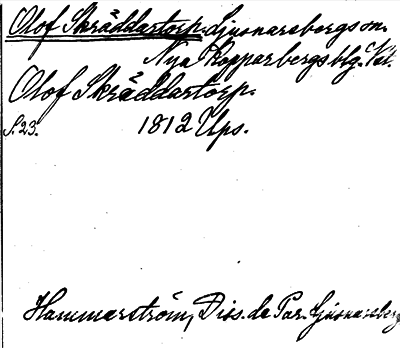 Olof Skräddartorp. Ljusnarsbergs sn.
Nya Kopparbergs blg. Vstl.
Olof Skräddartorp.
S. 23. 1812 Ups.
Hammerström, Diss. de Par. Ljusnarsberg